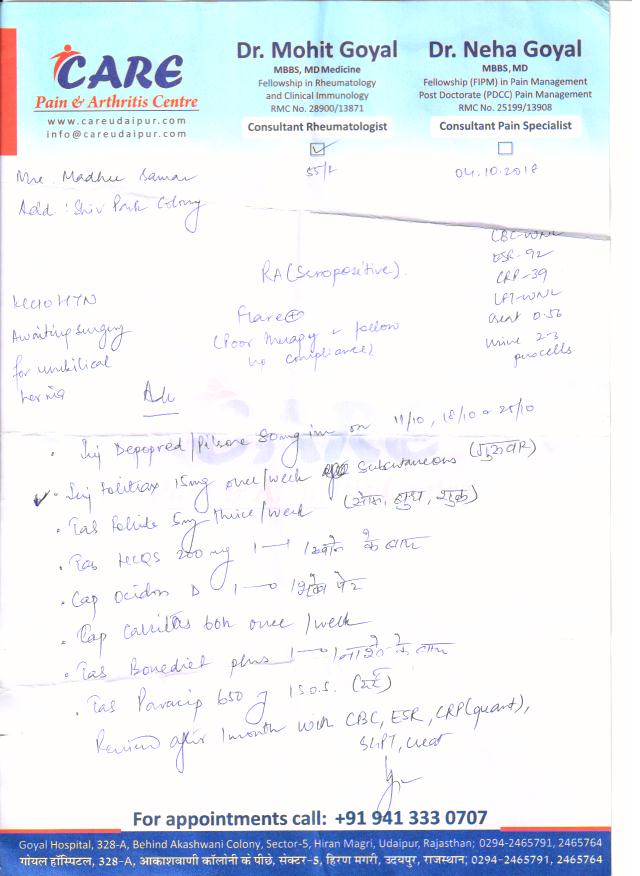 CARE
Pain & Arthritis Centre
www.careudaipur.com
info@careudaipur.com
Dr. Mohit Goyal
MBBS, MD Medicine
Fellowship in Rheumatology
and Clinical Immunology
RMC No. 28900/13871
Consultant Rheumatologist
Dr. Neha Goyal
MBBS, MD
Fellowship (FIPM) in Pain Management
Post Doctorate (PDCC) Pain Management
RMC No. 25199/13908
Consultant Pain Specialist
Mrs. Madhu
55/
04.10.2018
Add : Shiv Park Colony
CBC-WNL
ESR-92
CRP-39
LFT-WNL
Creat 0.56
Urine 2-3
puscells
RA (Seropositive).
Flare ⊕
(Poor therapy & follow
up compliance)
K/C/O HTN
Awaiting surgery
for umbilical
hernia
Adv
· Inj Depopred / 80mg i/m on 11/10, 18/10 & 25/10
· Inj 15mg once/week subcutaneous (गुरुवार)
· Tab Folite 5mg thrice/week (सोम, बुध, शुक्र)
· Tab HCQS 200mg 1—1 खाने के बाद
· Cap Ocidon D 1—0 भूखे पेट
· Cap 60k once/week
· Tab plus 1—0 नाश्ते के बाद
· Tab Paracip 650 1 S.O.S. (दर्द)
Review after 1 month with CBC, ESR, CRP (quant),
SGPT, creat
CARE
For appointments call: +91 941 333 0707
Goyal Hospital, 328-A, Behind Akashwani Colony, Sector-5, Hiran Magri, Udaipur, Rajasthan; 0294-2465791, 2465764
गोयल हॉस्पिटल, 328-A, आकाशवाणी कॉलोनी के पीछे, सेक्टर-5, हिरण मगरी, उदयपुर, राजस्थान; 0294-2465791, 2465764